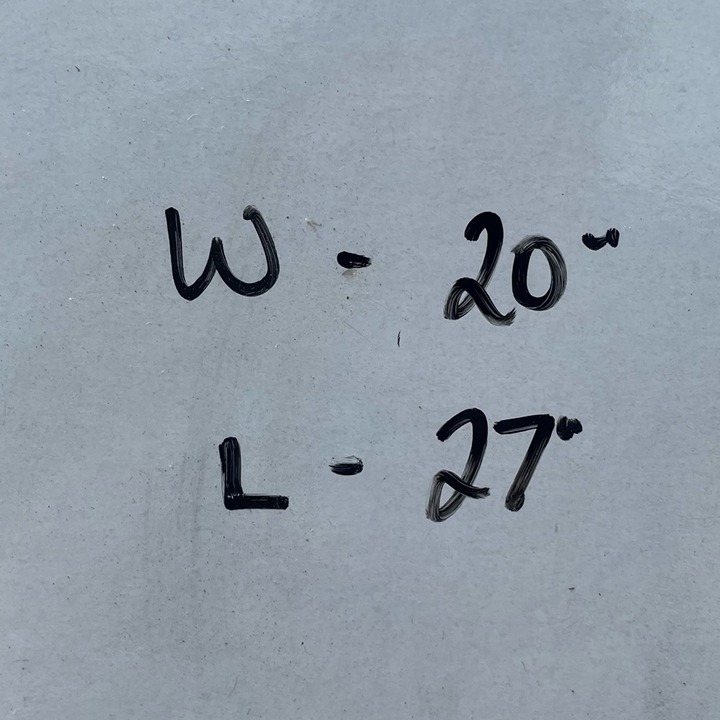 W - 20"
L - 27"